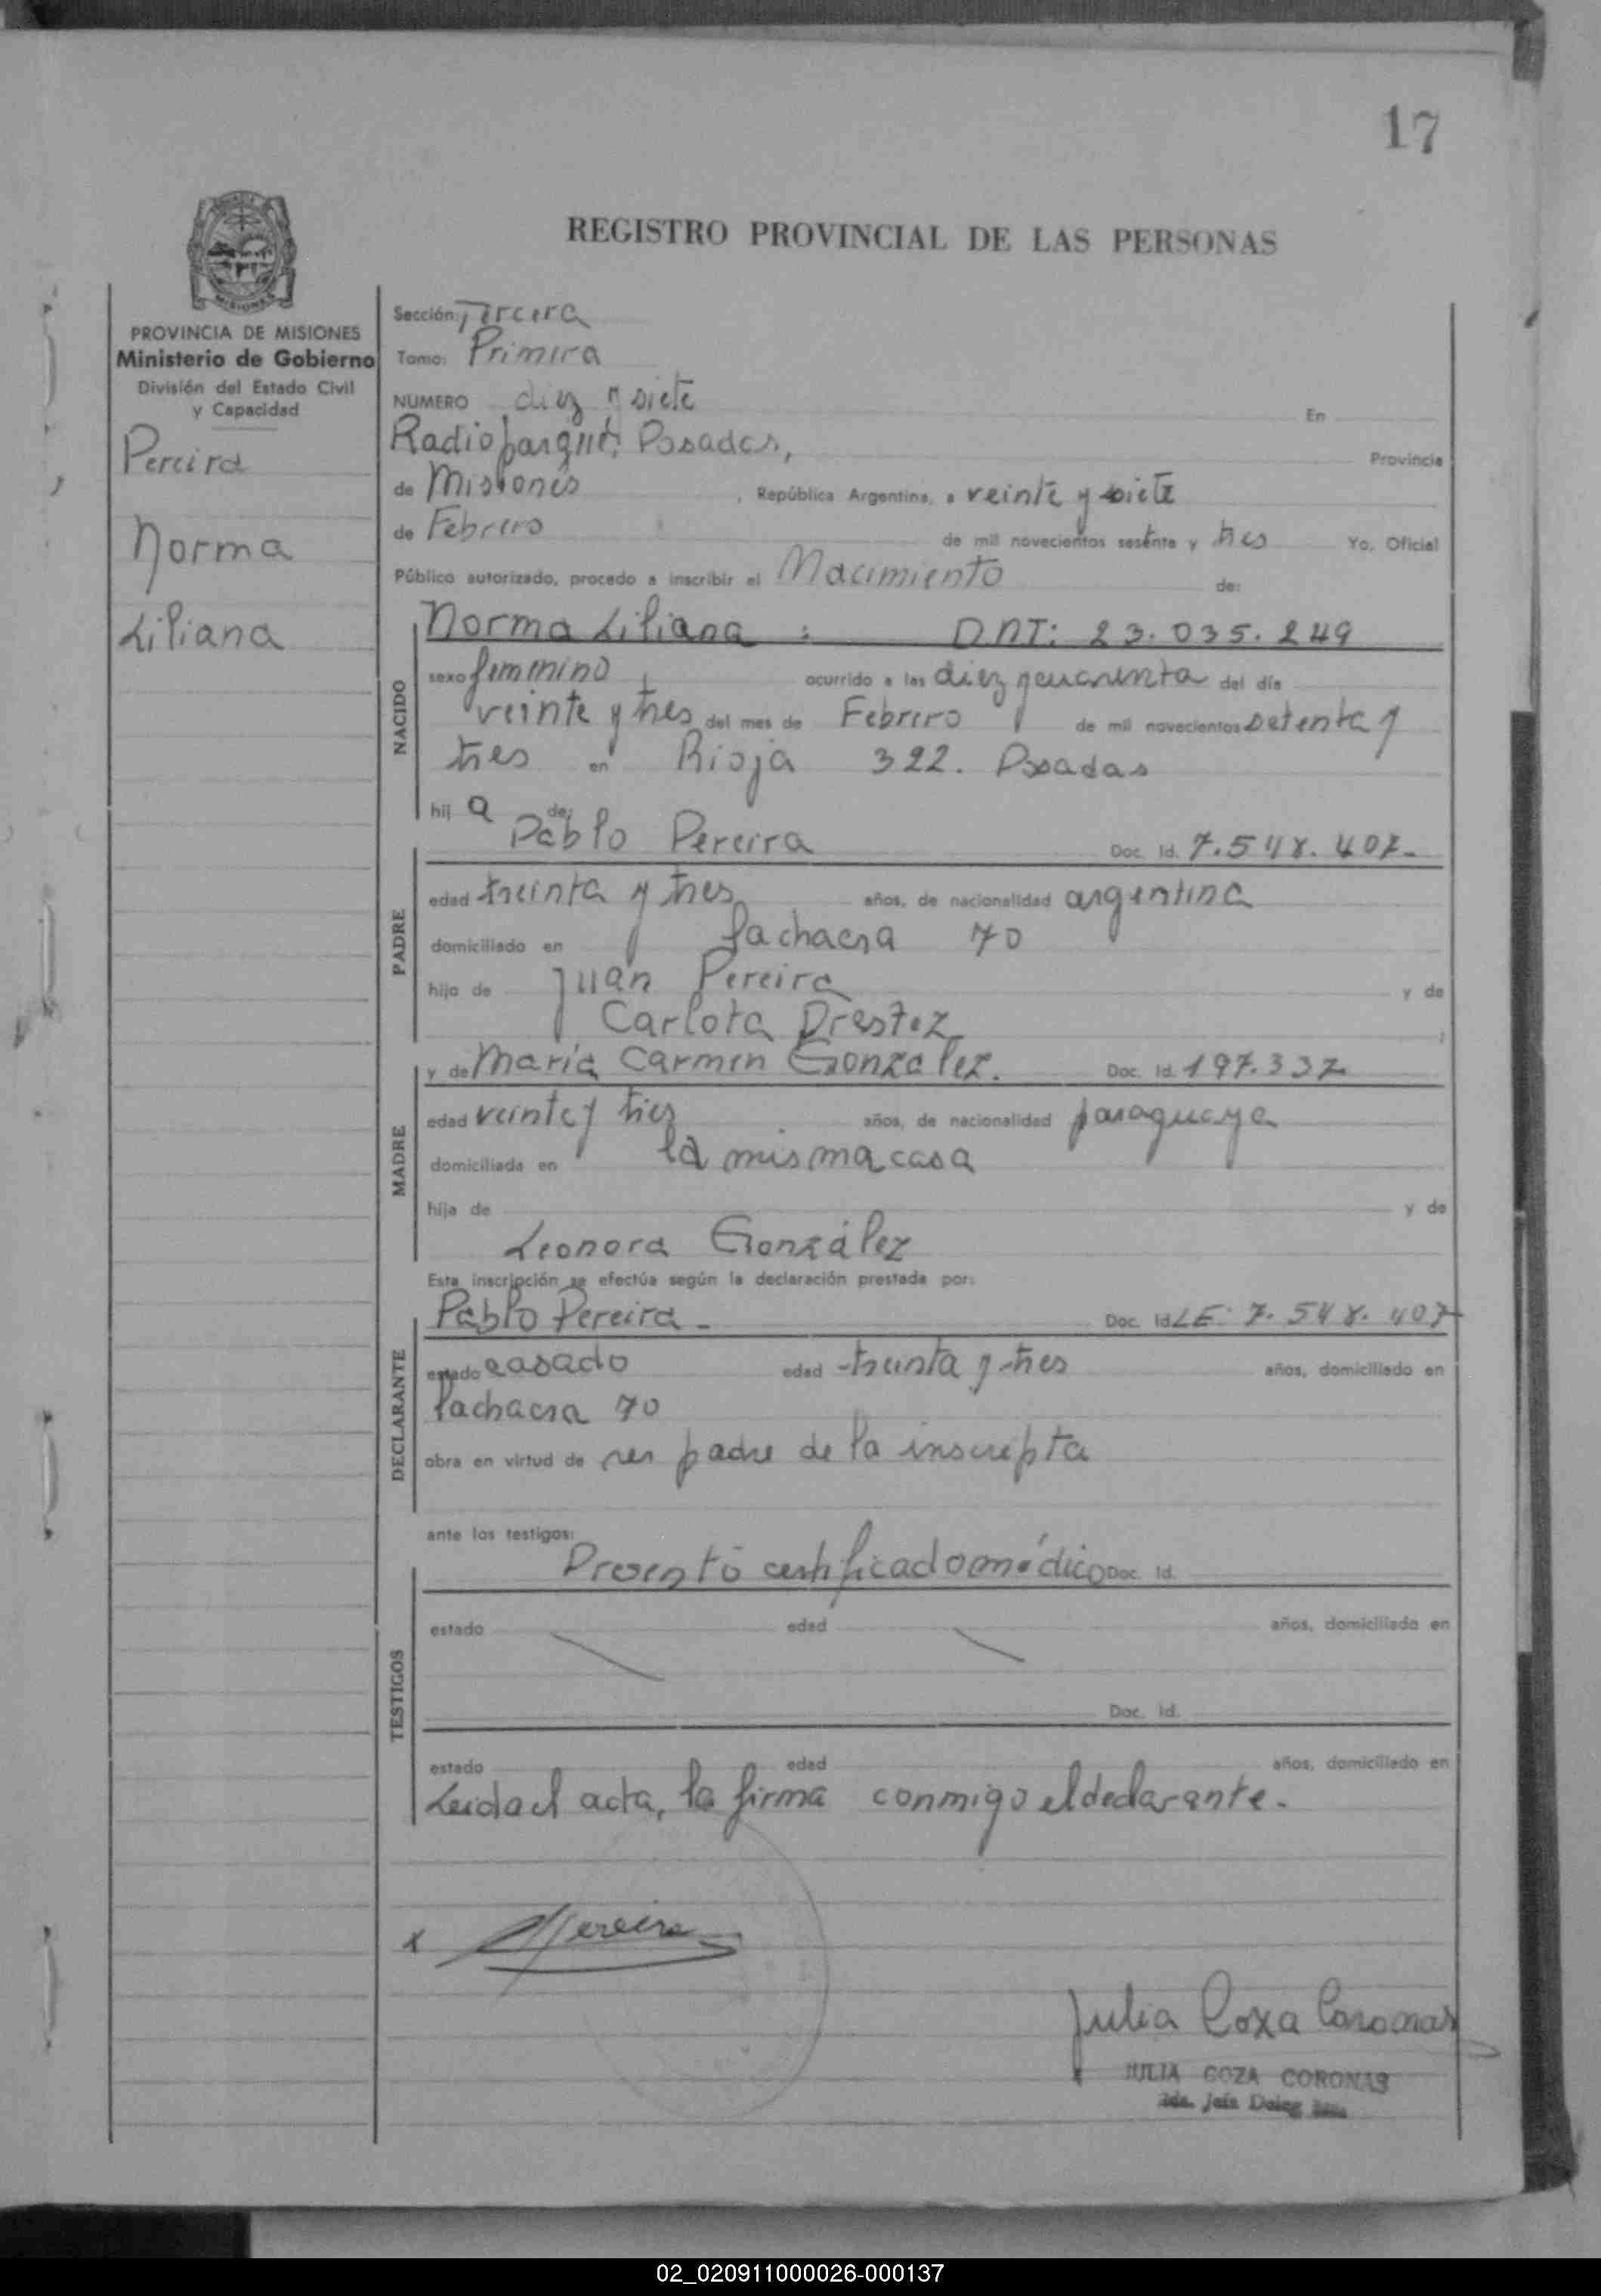 17
REGISTRO PROVINCIAL DE LAS PERSONAS
MISIONES
PROVINCIA DE MISIONES
Ministerio de Gobierno
División del Estado Civil
y Capacidad
Pereira
Norma
Liliana
Sección: Tercera
Tomo: Primera
NUMERO diez y siete En
Posadas, Provincia
de Misiones, República Argentina, a veinte y siete
de Febrero de mil novecientos sesenta y tres Yo, Oficial
Público autorizado, procedo a inscribir el Nacimiento de:
NACIDO
Norma Liliana : D.N.I: 23.035.249
sexo femenino ocurrido a las diez y cuarenta del día
veinte y tres del mes de Febrero de mil novecientos setenta y
tres en Rioja 322. Posadas
hij a de:
PADRE
Pablo Pereira Doc. Id. 7.548.407-
edad treinta y tres años, de nacionalidad argentina
domiciliado en la chacra 70
hijo de Juan Pereira y de
Carlota
MADRE
y de María Carmen González. Doc. Id. 197.337
edad veinte y tres años, de nacionalidad paraguaya
domiciliada en la misma casa
hija de y de
Leonora González
Esta inscripción se efectúa según la declaración prestada por:
DECLARANTE
Pablo Pereira - Doc. Id LE: 7.548.407
estado casado edad treinta y tres años, domiciliado en
la chacra 70
obra en virtud de ser padre de la inscripta
ante los testigos:
TESTIGOS
Presentó certificado médico Doc. Id.
estado edad años, domiciliado en
Doc. Id.
estado edad años, domiciliado en
Leida el acta, la firma conmigo el declarante.
x Pereira
Julia Coza Coronas
JULIA COZA CORONAS
02_020911000026-000137